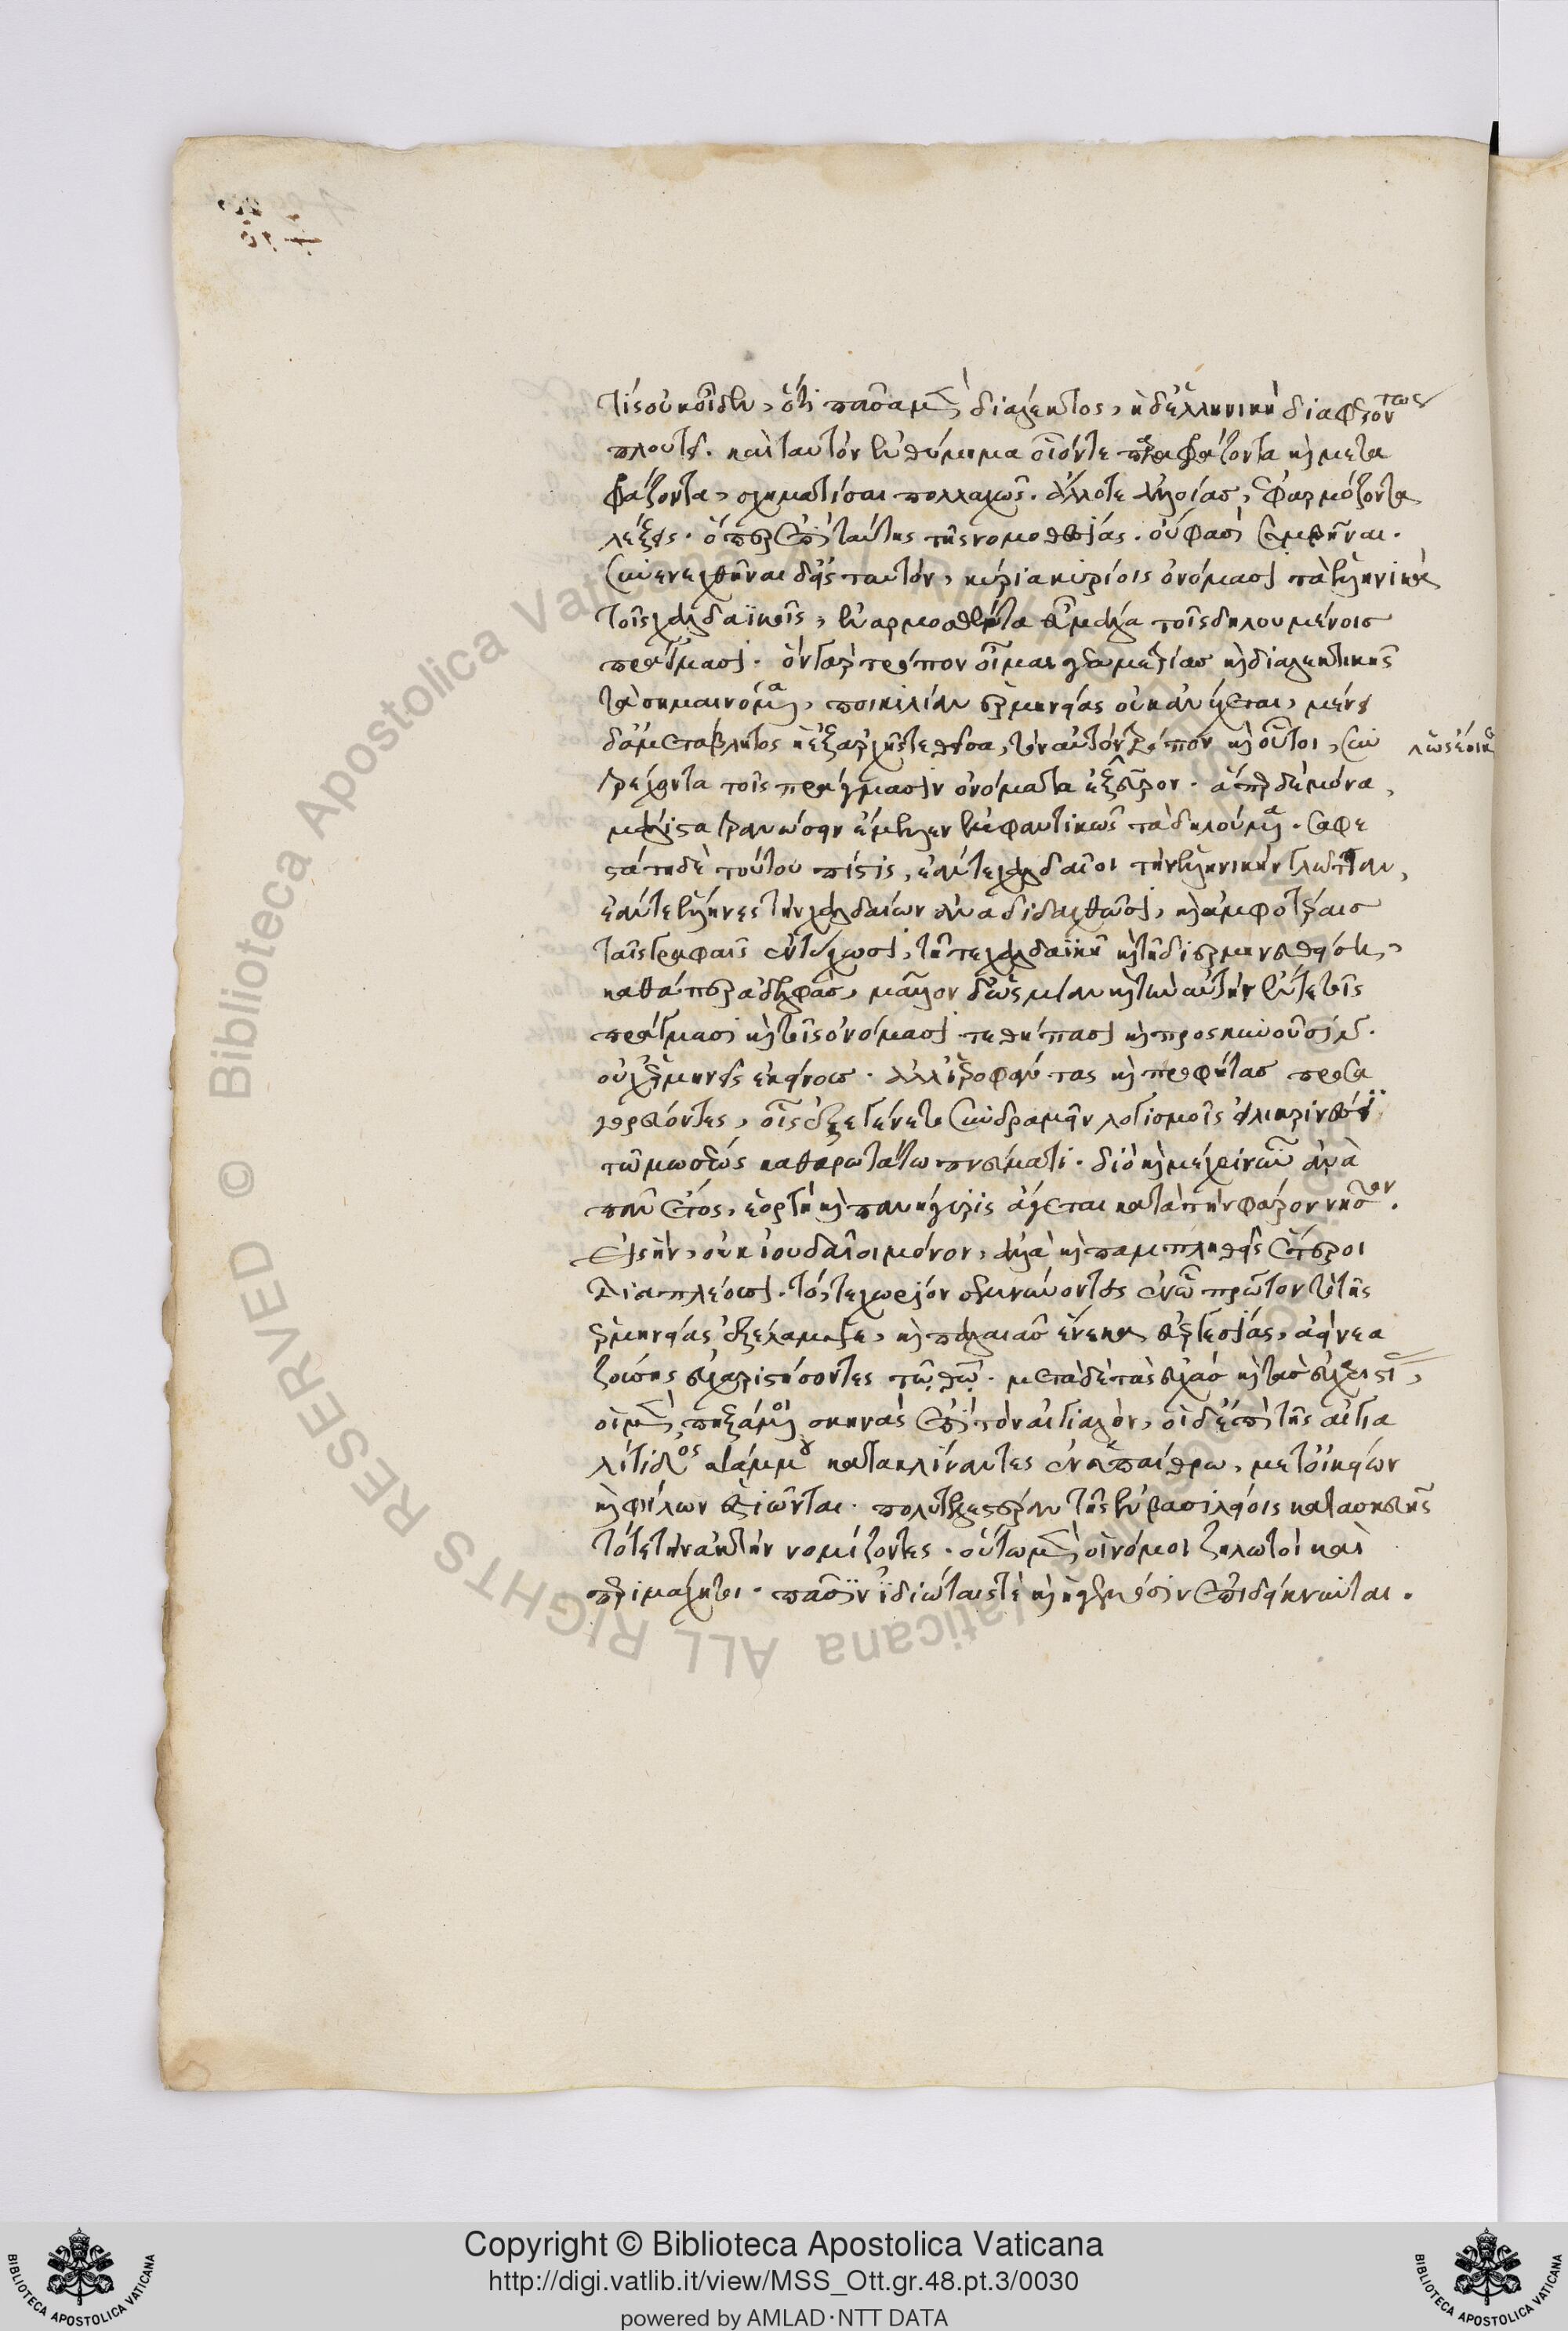 τίς οὐκ οἶδεν, ὅτι πᾶσα μὲν διάλεκτος, ἡ δ' ἑλληνικὴ διαφερόντως
πλουτεῖ. καὶ ταυτὸν ἐνθύμημα οἷόν τε παραφράζοντα καὶ μετα
φράζοντα, σχηματίσαι πολλαχῶς. ἄλλοτε ἄλλας, ἐφαρμόζοντα
λέξεις. ὅπερ ἐπὶ ταύτης τῆς νομοθεσίας. οὔ φασι συμβῆναι.
συνενεχθῆναι δ' εἰς ταυτόν, κύρια κυρίοις ὀνόμασι τὰ ἑλληνικὰ
τοῖς χαλδαϊκοῖς, ἐναρμοσθέντα εὖ μάλα τοῖς δηλουμένοισ
πράγμασι. ὃν γὰρ τρόπον οἶμαι γεωμετρίασ καὶ διαλεκτικῆς
τὰ σημαινόμενα, ποικιλίαν ἑρμηνείας οὐκ ἀνέχεται, μένει
δ' ἀμετάβλητος ἡ ἐξ ἀρχῆς τεθεῖσα, τὸν αὐτὸν τρόπον καὶ οὗτοι, συν
ὡς ἔοικε
τρέχοντα τοῖς πράγμασιν ὀνόματα ἐξεῦρον. ἅπερ δὴ μόνα,
μάλιστα τρανώσειν ἔμελλεν ἐμφαντικῶς τὰ δηλούμενα. σαφε
στάτη δὲ τούτου πίστις, ἐάν τε χαλδαῖοι τὴν ἑλληνικὴν γλῶτταν,
ἐάν τε ἕλληνες τὴν χαλδαίων ἀναδιδαχθῶσι, καὶ ἀμφοτέραισ
ταῖς γραφαῖς ἐντύχωσι, τῆ τε χαλδαϊκῆ καὶ τῆ διερμηνευθείση,
καθάπερ ἀδελφὰσ, μᾶλλον δ' ὡς μίαν καὶ τὴν αὐτὴν ἔν τε τοῖς
πράγμασι καὶ τοῖς ὀνόμασι τεθήπασι καὶ προσκυνοῦσιν.
οὐχ ἑρμηνεῖς ἐκείνουσ. ἀλλ' ἱεροφάντας καὶ προφήτασ προσα
γορεύοντες, οἷς ἐξεγένετο συνδραμεῖν λογισμοῖς εἰλικρινέσι
τῶ μωσέως καθαρωτάτω πνεύματι. διὸ καὶ μέχρι νῦν ἀνὰ
πᾶν ἔτος, ἑορτὴ καὶ πανήγυρις ἄγεται κατὰ τὴν φάρον νῆσον.
εἰς ἣν, οὐκ ἰουδαῖοι μόνον, ἀλλὰ καὶ παμπληθεῖς ἕτεροι
διαπλέουσι. τό, τε χωρίον σεμνύνοντες ἐν ὧ πρῶτον τὸ τῆς
ἑρμηνείας ἐξέλαμψε, καὶ παλαιᾶσ ἕνεκα εὐεργεσίας, ἀεὶ νεα
ζούσης εὐχαριστήσοντες τῶ θῶ. μετὰ δὲ τὰς εὐχὰσ καὶ τὰσ εὐχαριστίας,
οἱ μὲν πηξάμενοι σκηνὰς ἐπὶ τὸν αἰγιαλόν, οἱ δ' ἐπὶ τῆς αἰγια
λίτιδος ψάμμου κατακλίναντες ἐν ὑπαίθρω, μετ' οἰκείων
καὶ φίλων ἑστιῶνται. πολυτελεστέραν τῆς ἐν βασιλείοις κατασκευῆς
τότε τὴν ἀκτὴν νομίζοντες. οὕτω μὲν οἱ νόμοι ζηλωτοὶ καὶ
περιμάχητοι. πᾶσιν ἰδιώταις τὲ καὶ ἡγεμόσιν ἐπιδείκνυνται.
Copyright © Biblioteca Apostolica Vaticana
http://digi.vatlib.it/view/MSS_Ott.gr.48.pt.3/0030
powered by AMLAD·NTT DATA